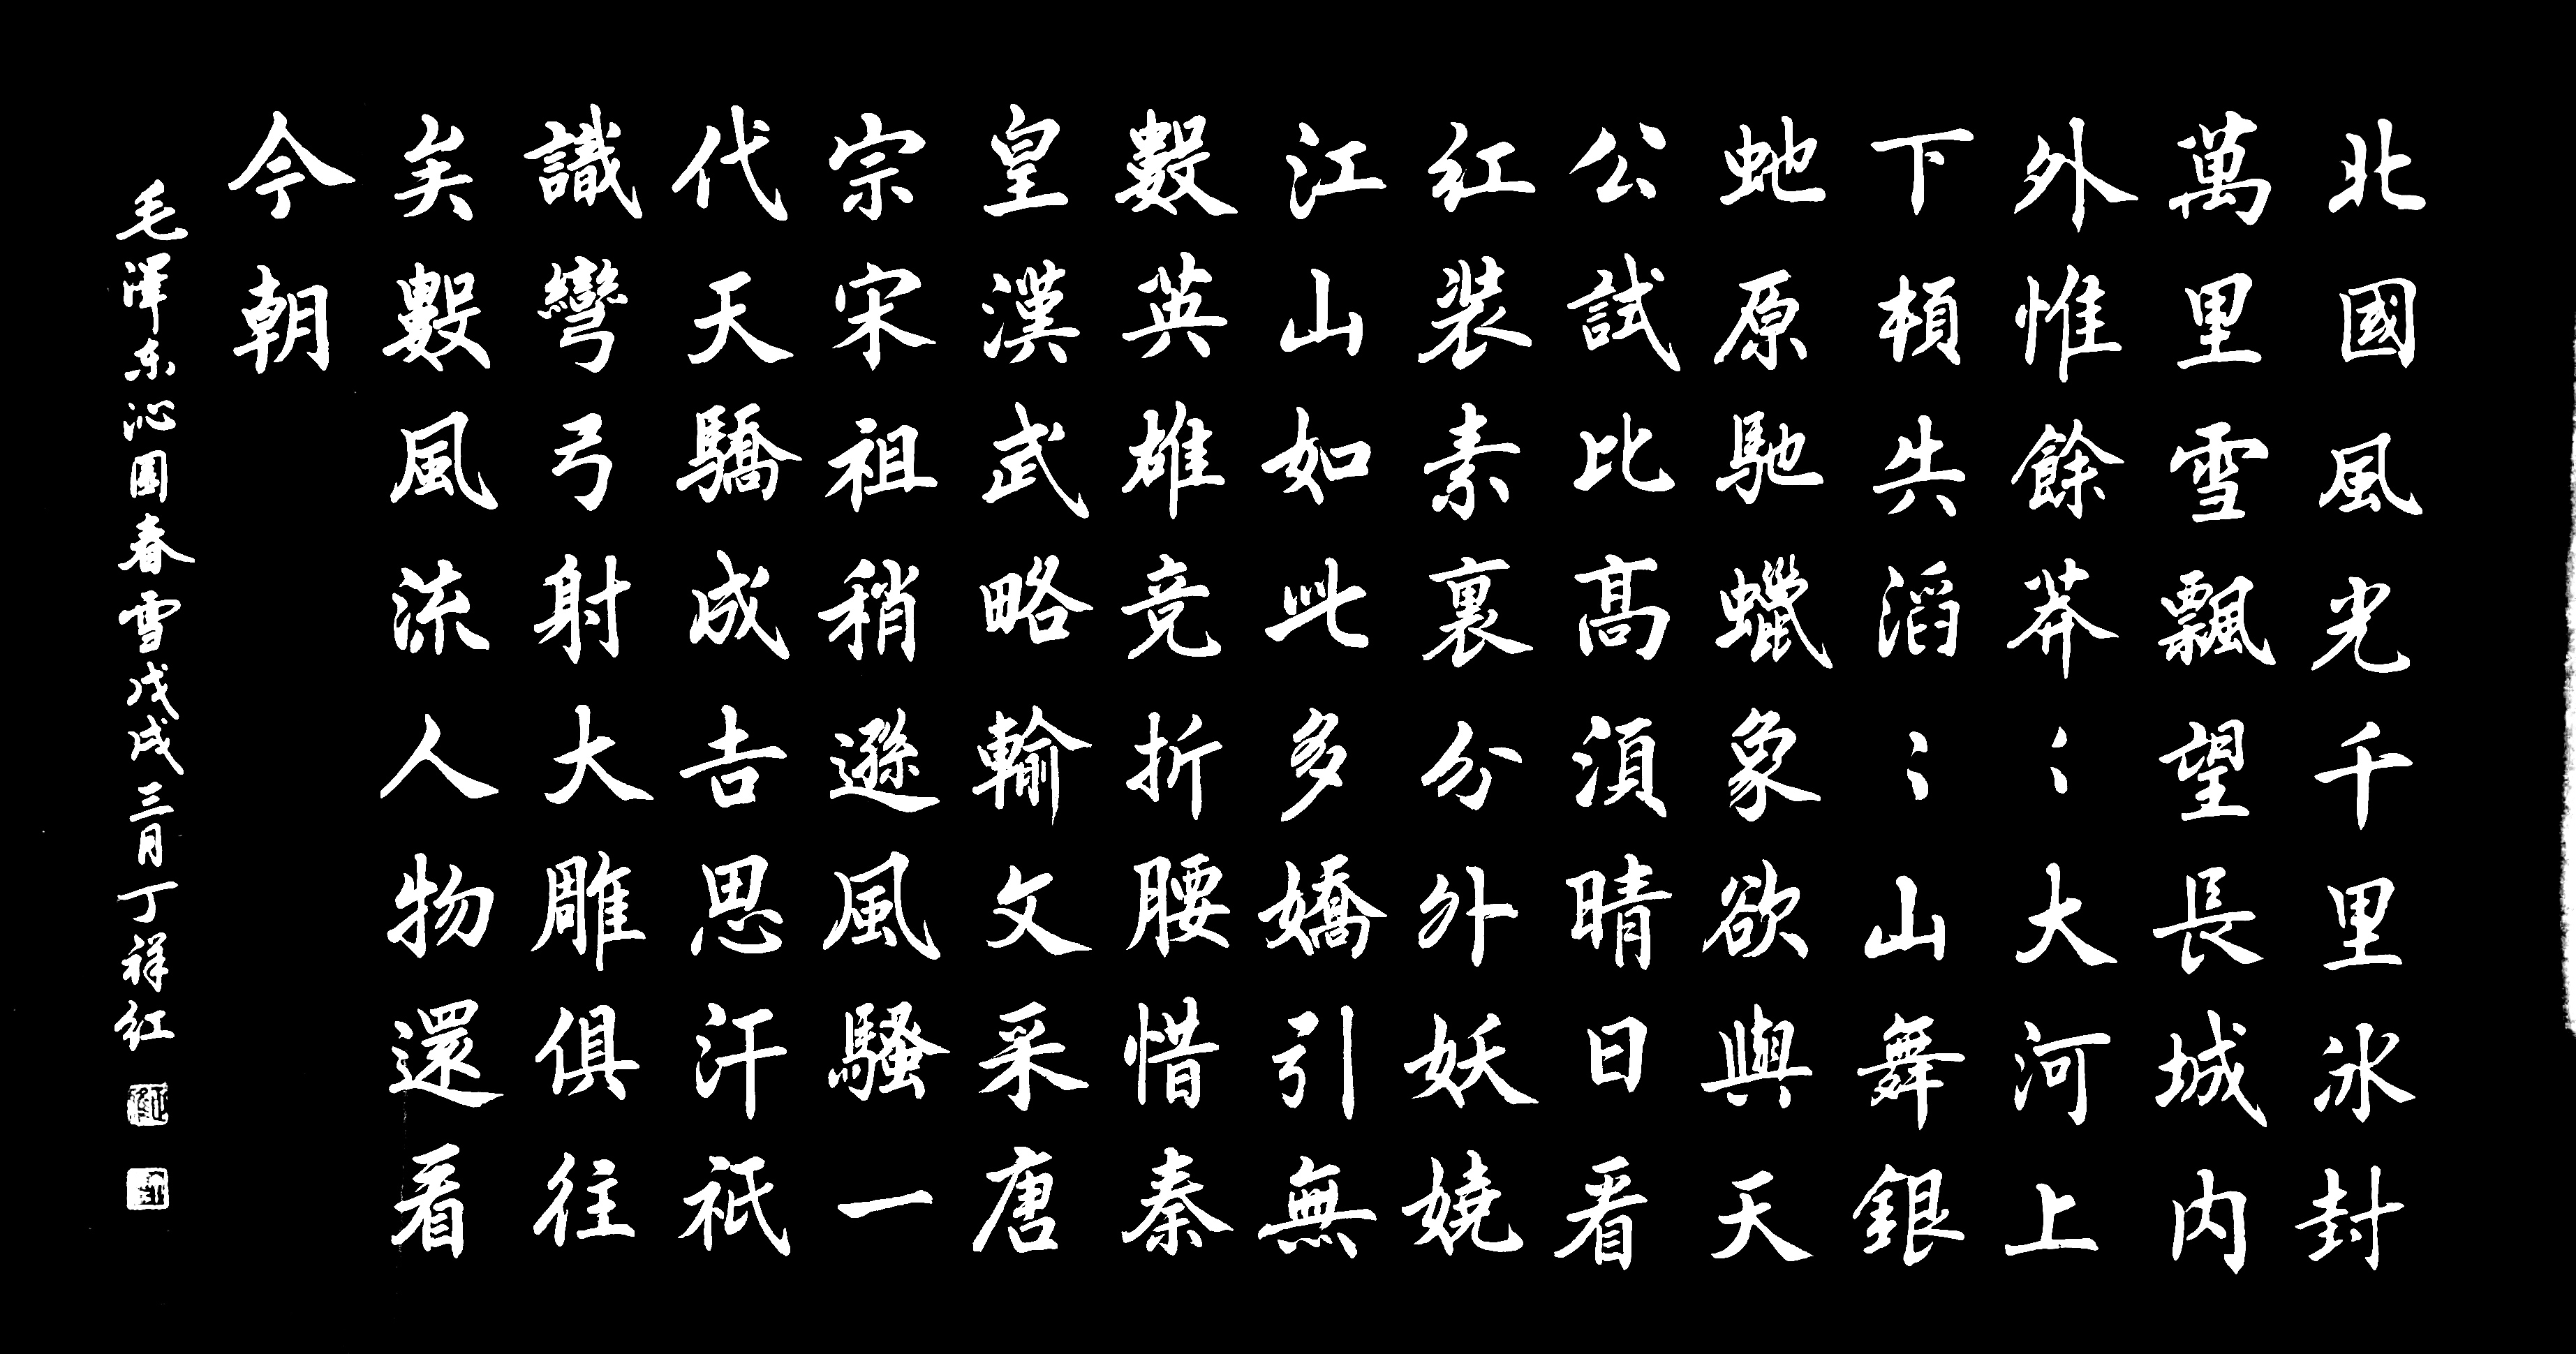 北國風光千里冰封
萬里雪飄望長城内
外惟餘莽〻大河上
下頓失滔〻山舞銀
虵原馳蠟象欲與天
公試比髙須晴日看
紅裝素裹分外妖嬈
江山如此多嬌引無
數英雄竞折腰惜秦
皇漢武略輸文采唐
宗宋祖稍遜風騷一
代天驕成吉思汗祇
識彎弓射大雕俱往
矣數風流人物還看
今朝
毛泽东沁園春雪戊戌三月丁祥红